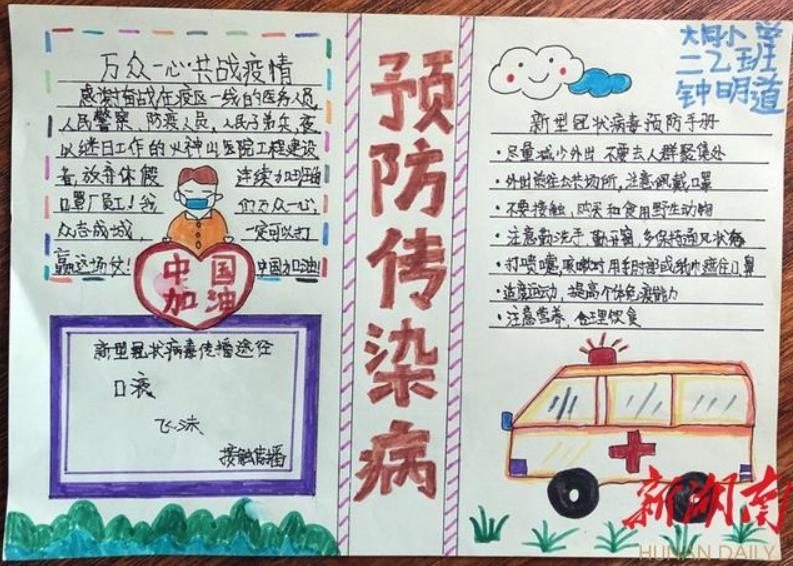 万众一心 共战疫情
感谢奋战在疫区一线的医务人员
人民警察、防疫人员，人民子弟兵，夜
以继日工作的火神山医院工程建设
者，放弃休假 连续加班的
口罩厂员工！我 们万众一心，
众志成城， 一定可以打
赢这场仗！ 中国加油！
中国
加油
新型冠状病毒传播途径
口液
飞沫
接触传播
预防传染病
大同小学
二乙班
钟明道
新型冠状病毒预防手册
·尽量减少外出 不要去人群聚集处
·外出前往公共场所，注意佩戴口罩
·不要接触，购买和食用野生动物
·注意勤洗手，勤开窗，多保持通风状态
·打喷嚏，咳嗽时用手肘部或纸巾遮住口鼻
·适度运动，提高个体免疫能力
·注意营养，合理饮食
新湖南
HUNAN DAILY